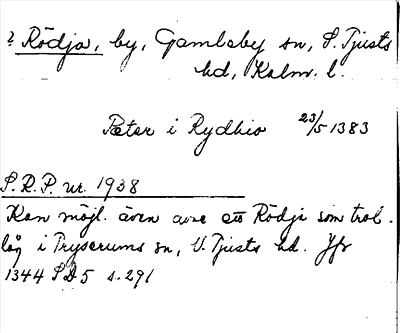 ? Rödja, by, Gamleby sn, S. Tjusts
hd, Kalm. l.
Pæter i Rydhio 23/5 1383
S.R.P. nr. 1938
Kan möjl. även avse ett Rödji som trol.
låg i Tryserums sn, N. Tjusts hd. Jfr
1344 SD 5 s. 291